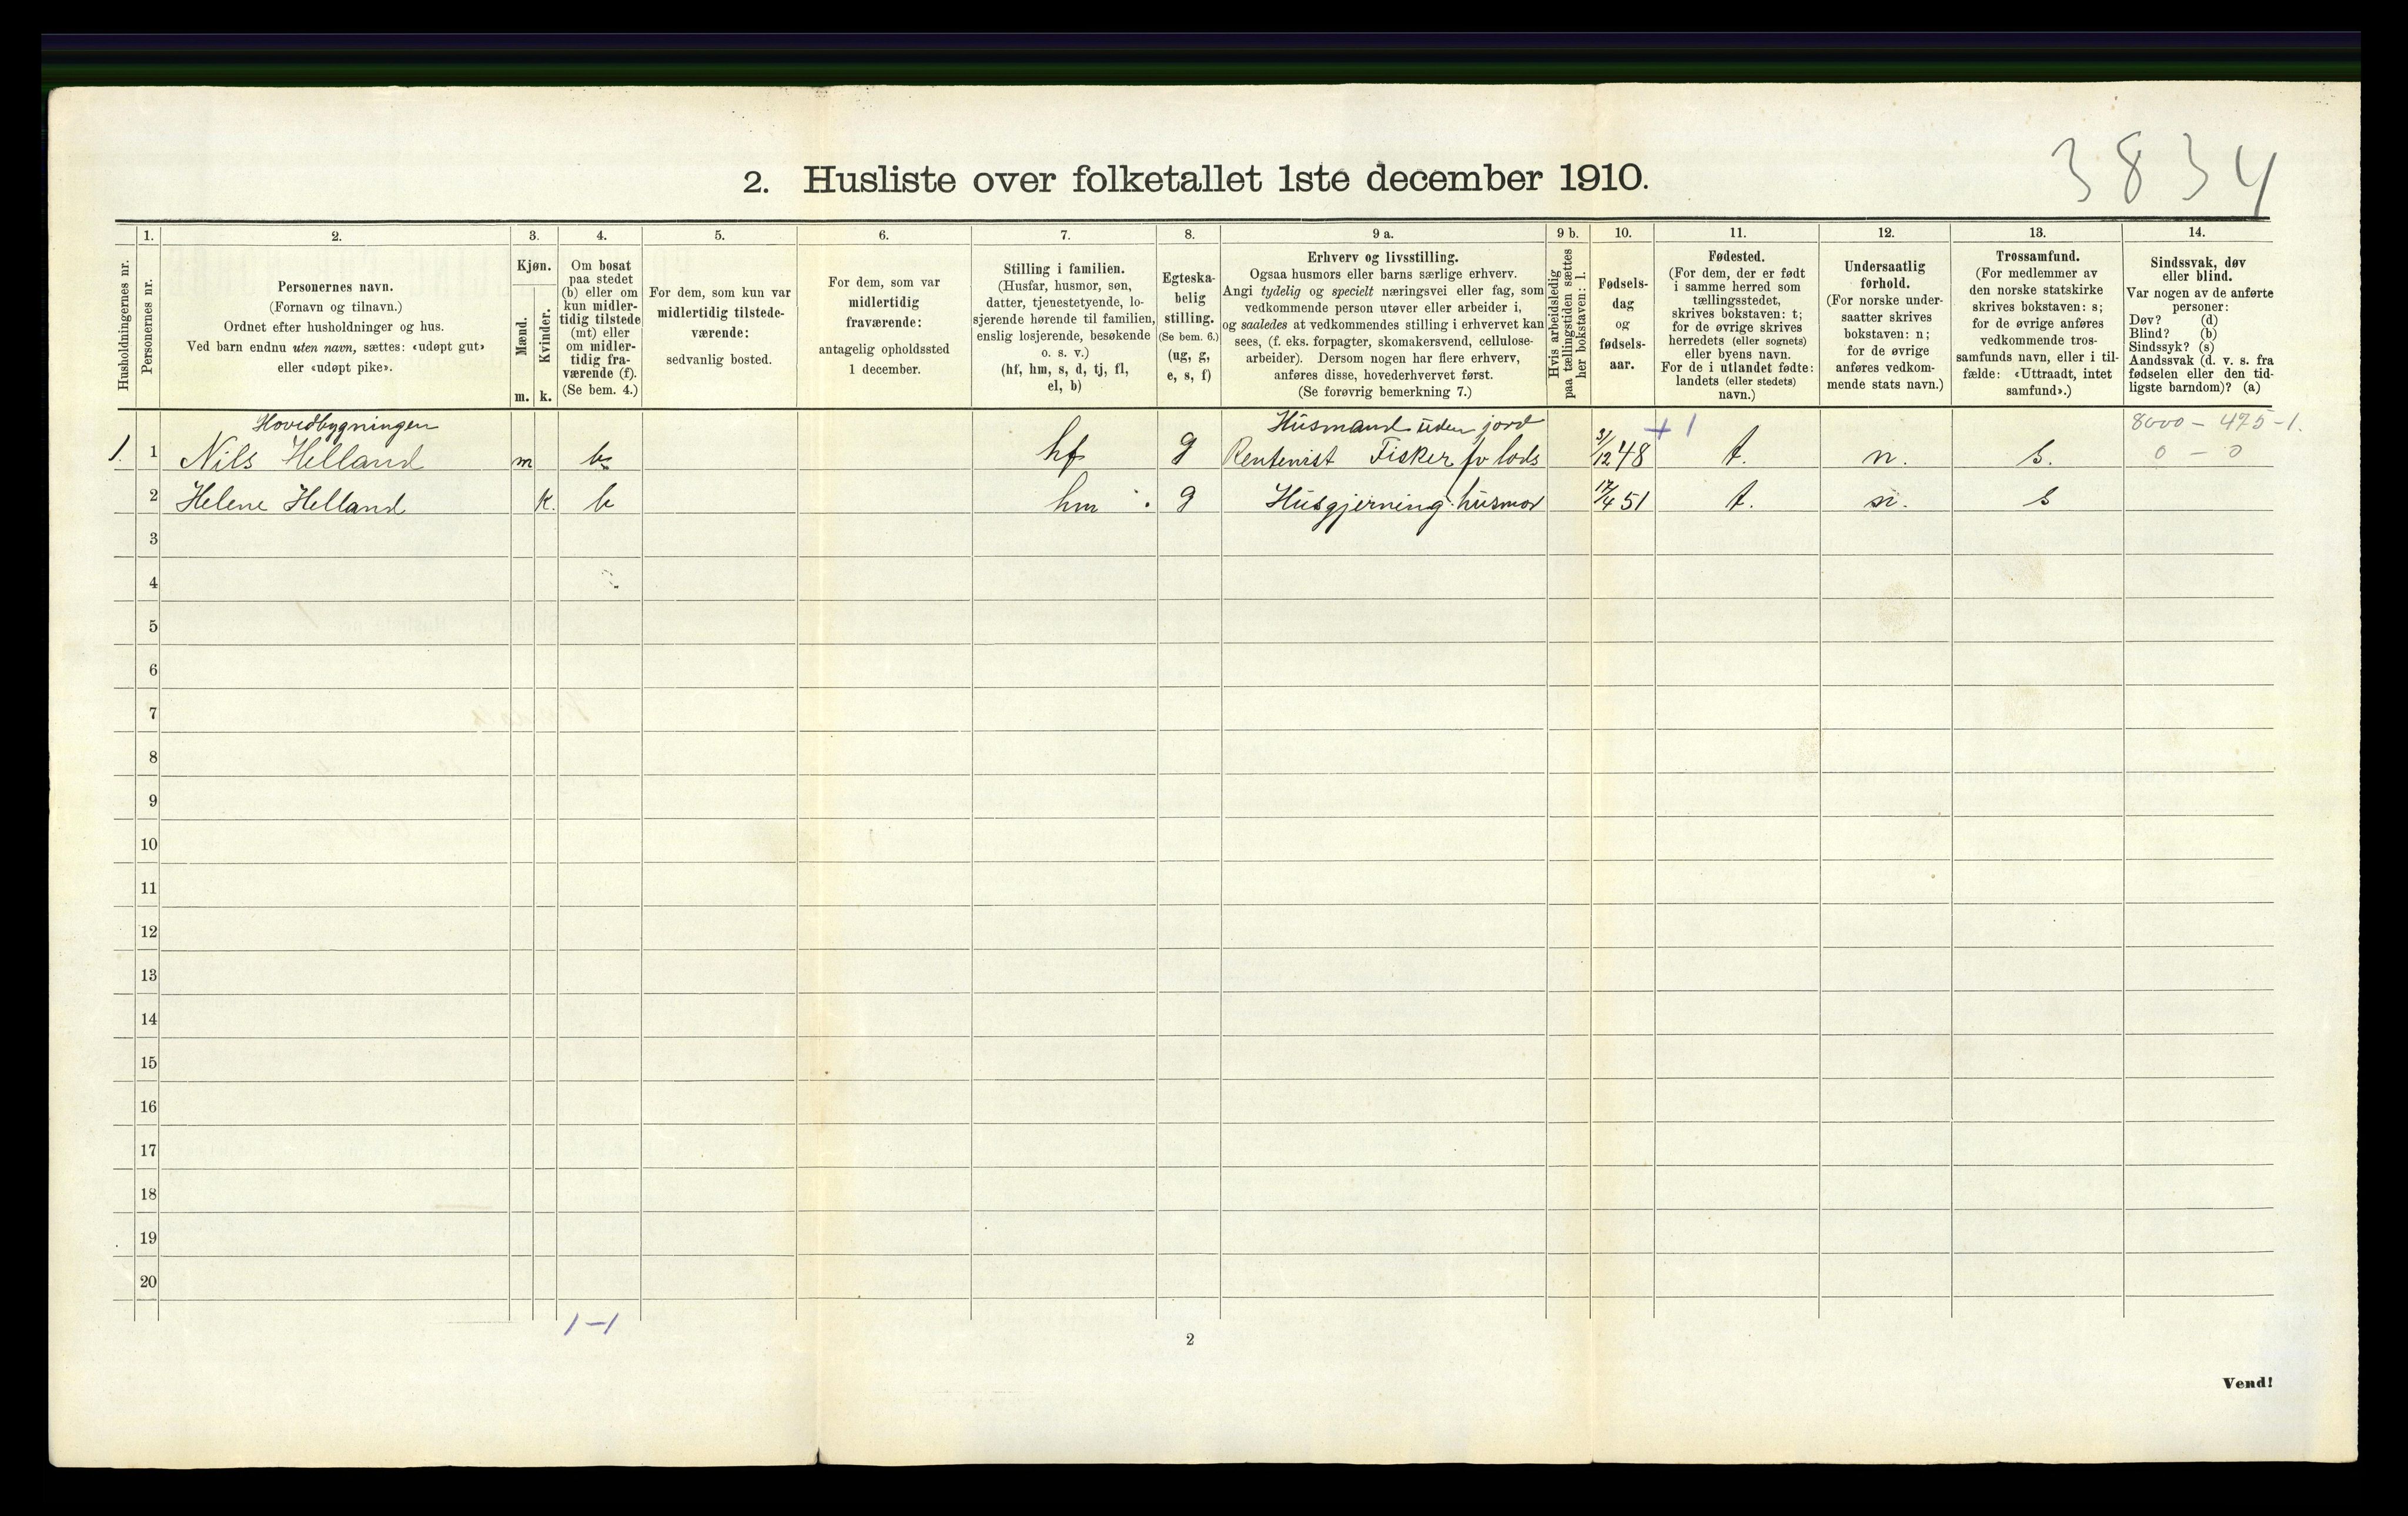 3834
2. Husliste over folketallet 1ste december 1910.
Husholdningernes nr.
1.
Personernes nr.
2.
Personernes navn.
(Fornavn og tilnavn.)
Ordnet efter husholdninger og hus.
Ved barn endnu uten navn, sættes: «udøpt gut»
eller «udøpt pike».
3.
Kjøn.
Mænd.
Kvinder.
m. k.
4.
Om bosat
paa stedet
(b) eller om
kun midler-
tidig tilstede
(mt) eller
om midler-
tidig fra-
værende (f).
(Se bem. 4.)
5.
For dem, som kun var
midlertidig tilstede-
værende:
sedvanlig bosted.
6.
For dem, som var
midlertidig
fraværende:
antagelig opholdssted
1 december.
7.
Stilling i familien.
(Husfar, husmor, søn,
datter, tjenestetyende, lo-
sjerende hørende til familien,
enslig losjerende, besøkende
o. s. v.)
(hf, hm, s, d, tj, fl,
el, b)
8.
Egteska-
belig
stilling.
(Se bem. 6.)
(ug, g,
e, s, f)
9 a.
Erhverv og livsstilling.
Ogsaa husmors eller barns særlige erhverv.
Angi tydelig og specielt næringsvei eller fag, som
vedkommende person utøver eller arbeider i,
og saaledes at vedkommendes stilling i erhvervet kan
sees, (f. eks. forpagter, skomakersvend, cellulose-
arbeider). Dersom nogen har flere erhverv,
anføres disse, hovederhvervet først.
(Se forøvrig bemerkning 7.)
9 b.
Hvis arbeidsledig
paa tællingstiden sættes
her bokstaven: l.
10.
Fødsels-
dag
og
fødsels-
aar.
11.
Fødested.
(For dem, der er født
i samme herred som
tællingsstedet,
skrives bokstaven: t;
for de øvrige skrives
herredets (eller sognets)
eller byens navn.
For de i utlandet fødte:
landets (eller stedets)
navn.)
12.
Undersaatlig
forhold.
(For norske under-
saatter skrives
bokstaven: n;
for de øvrige
anføres vedkom-
mende stats navn.)
13.
Trossamfund.
(For medlemmer av
den norske statskirke
skrives bokstaven: s;
for de øvrige anføres
vedkommende tros-
samfunds navn, eller i til-
fælde: «Uttraadt, intet
samfund».)
14.
Sindssvak, døv
eller blind.
Var nogen av de anførte
personer:
Døv? (d)
Blind? (b)
Sindssyk? (s)
Aandssvak (d. v. s. fra
fødselen eller den tid-
ligste barndom)? (a)
Hovedbygningen Husmand uden jord + 1 8000 - 475 - 1.
1. 1 Nils Helland m b hf g Rentenist Fisker fv lods 31/12 48 t. n. s. 0 - 0
2 Helene Helland k. b hm g Husgjerning: husmor 17/4 51 t. n. s
3
4
5
6
7
8
9
10
11
12
13
14
15
16
17
18
19
20
1-1
2
Vend!